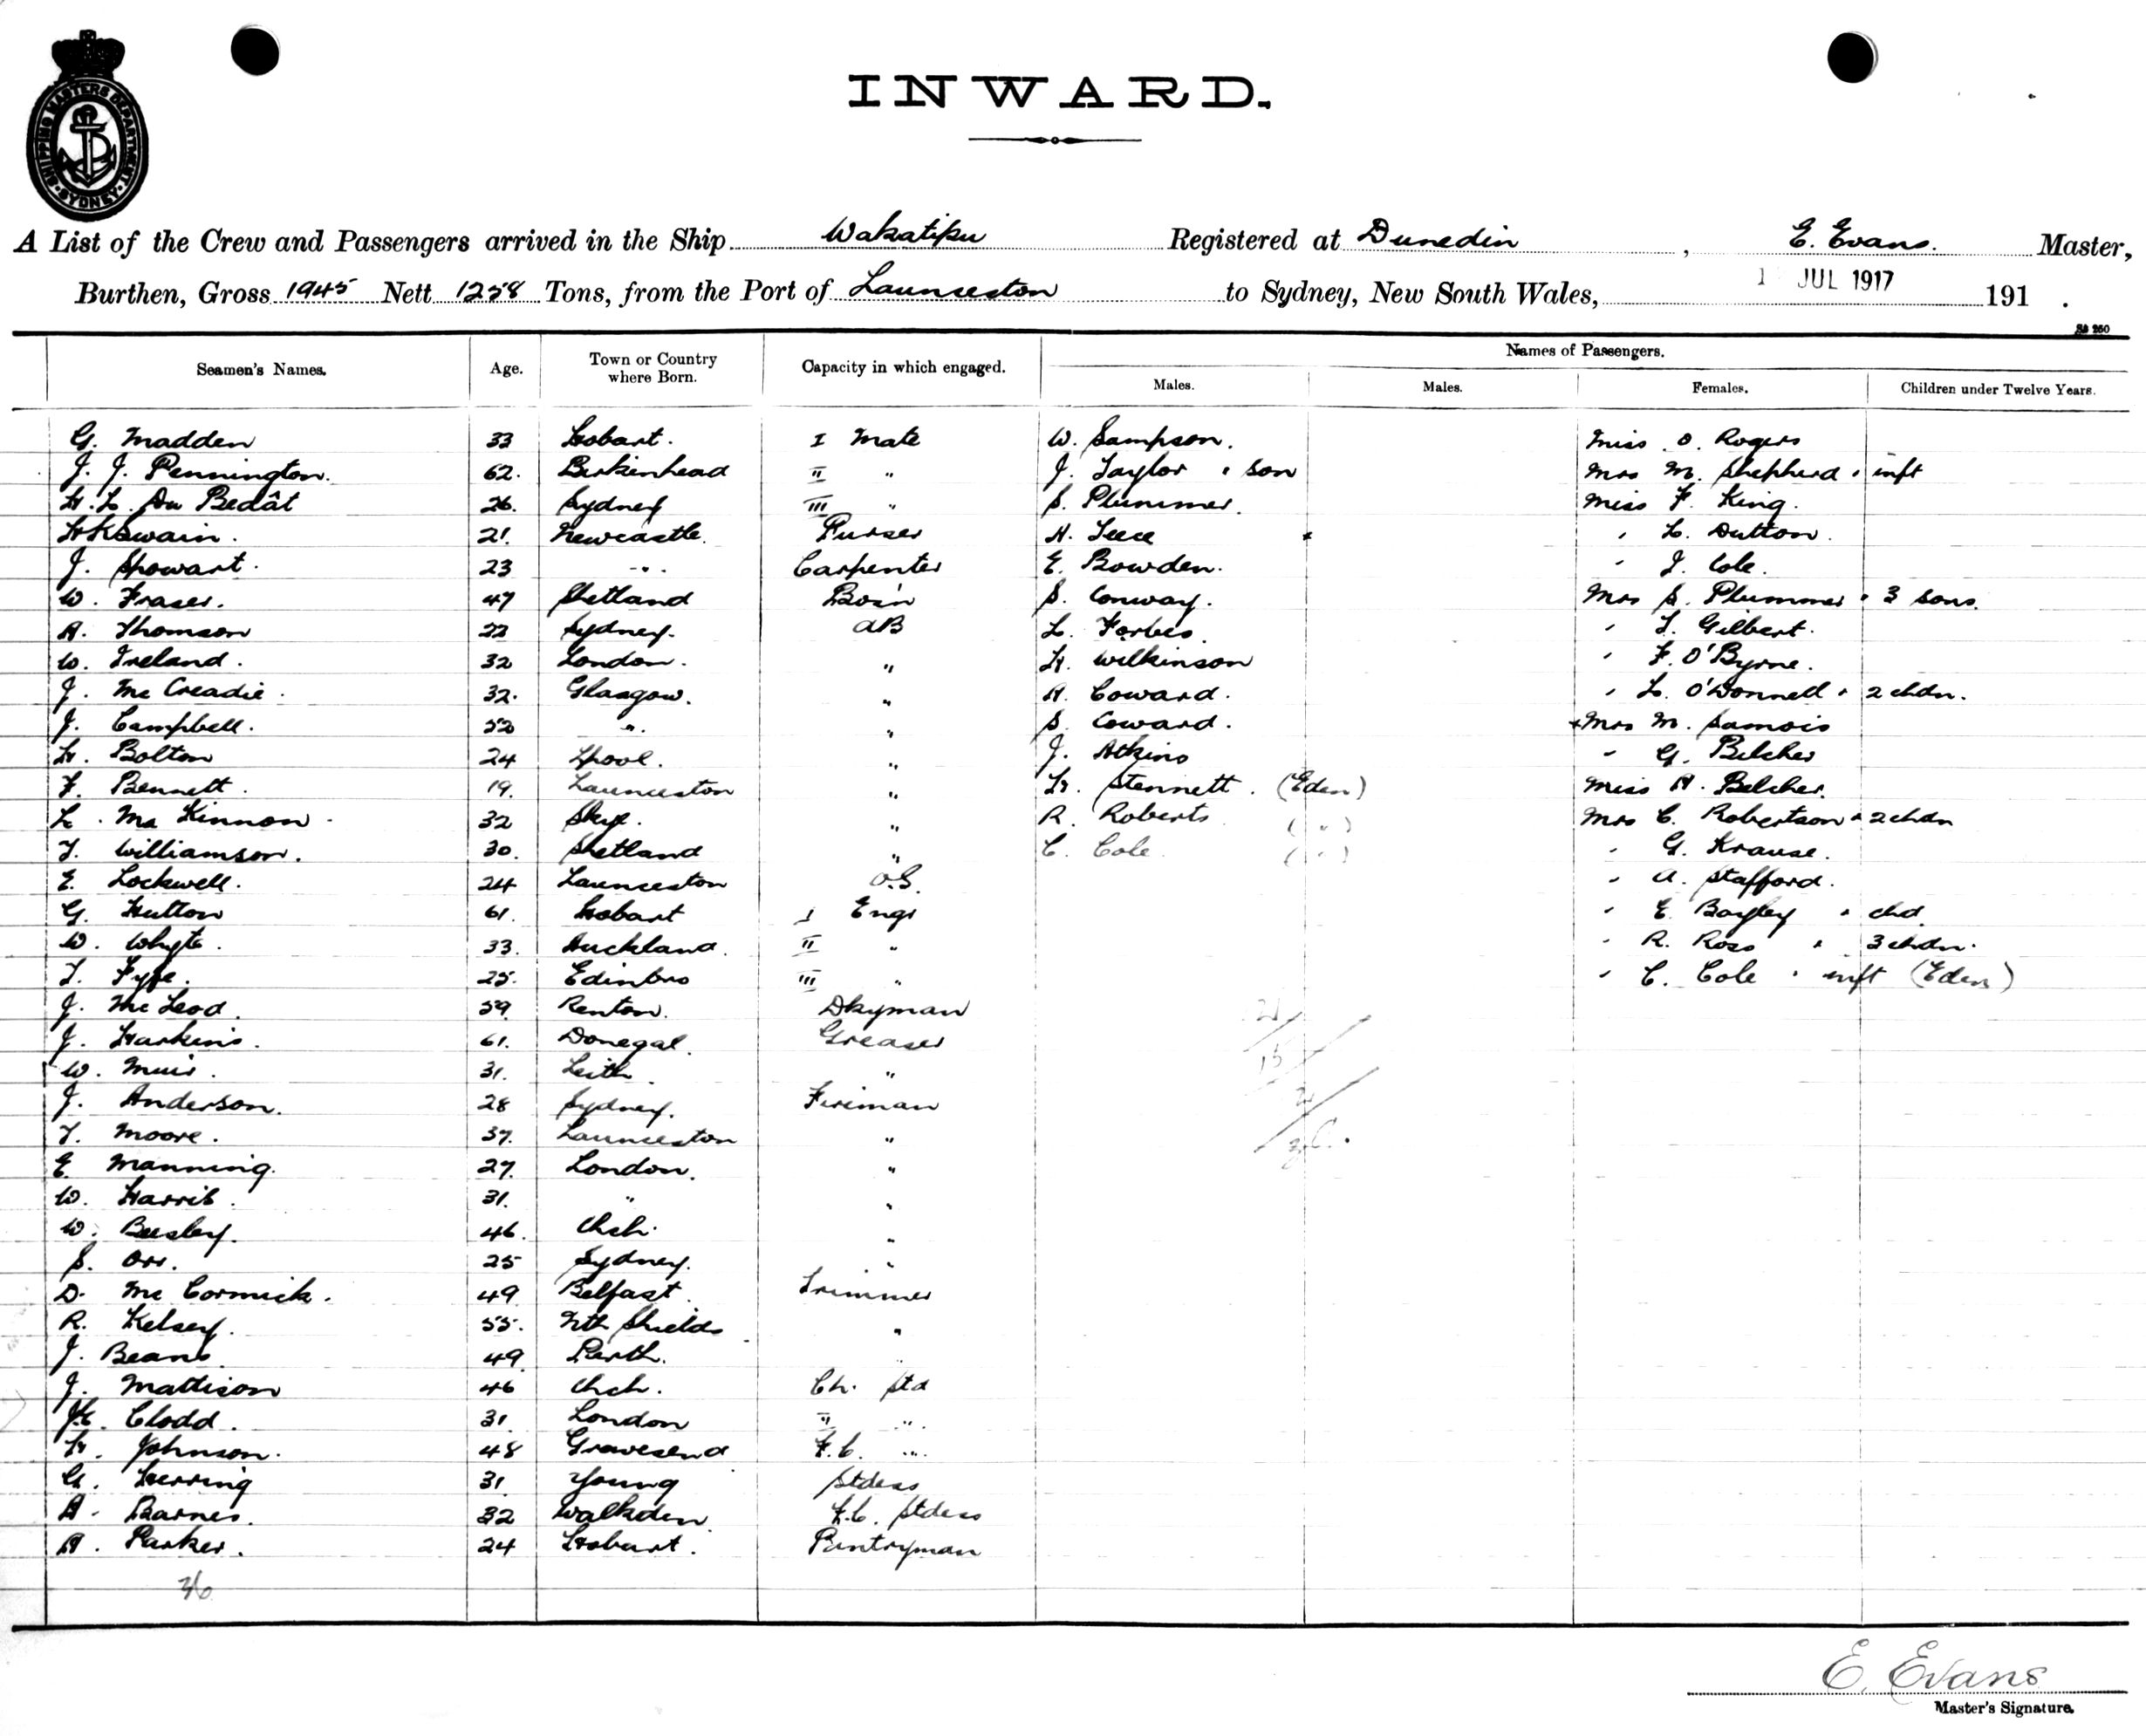 SHIPPING MASTERS DEPARTMENT · SYDNEY ·
INWARD.
A List of the Crew and Passengers arrived in the Ship Wakatipu Registered at Dunedin, E. Evans. Master,
Burthen, Gross 1945 Nett 1258 Tons, from the Port of Launceston to Sydney, New South Wales, 1 JUL 1917 191 .
SB 250
Seamen's Names. Age. Town or Country where Born. Capacity in which engaged. Names of Passengers.
Males. Males. Females. Children under Twelve Years.
G. Madden 33 Hobart. I Mate W. Sampson. Miss O. Rogers
J. J. Pennington. 62. Birkenhead II " J. Taylor & son Mrs M. Shepherd & inft
H. L. Du Bedât 26. Sydney III " S. Plummer. Miss F. King.
H K Swain. 21. Newcastle. Purser H. Leece " L. Dutton.
J. Showart. 23 " Carpenter E. Bowden. " J. Cole.
W. Fraser. 47 Shetland Bosn S. Conway. Mrs S. Plummer & 3 sons.
A. Thomson 22 Sydney. AB L. Forbes. " T. Gilbert.
W. Ireland. 32 London. " H. Wilkinson " F. O'Byrne.
J. McCreadie. 32. Glasgow. " A. Coward. " L. O'Donnell & 2 chdn.
J. Campbell. 52 " " S. Coward. Mrs M. Samois
H. Bolton 24 Lpool. " J. Atkins " G. Belcher
F. Bennett. 19. Launceston " H. Stennett. (Eden) Miss A. Belcher.
L. McKinnon. 32 Skye. " R. Roberts ( " ) Mrs C. Robertson & 2 chdn
T. Williamson. 30. Shetland " C. Cole ( " ) " G. Krause.
E. Lockwell. 24 Launceston O.S. " A. Stafford.
G. Hutton 61. Hobart I Engr " E. Bayley & chd.
W. Whyte. 33. Auckland. II " " R. Ross & 3 chdn.
T. Fyfe. 25. Edinbro III " " C. Cole & inft (Eden)
J. McLeod. 59. Renton. Dkyman
J. Harkins. 61. Donegal. Greaser
W. Muir. 31. Leith "
J. Anderson. 28 Sydney. Fireman
T. Moore. 37. Launceston "
E. Manning. 27. London. "
W. Harris. 31. " "
W. Beesley. 46. Chch. "
S. Orr. 25 Sydney. "
D. McCormick. 49 Belfast. Trimmer
R. Kelsey. 55. Nth Shields "
J. Beans. 49 Perth. "
J. Mattison 46 Chch. Ch. Std
Clodd. 31. London II "
H. Johnson. 48 Gravesend F.C. "
G. Herring 31. Young Stdess
A. Barnes. 32 Walkden. F.C. Stdess
A. Parker. 24 Hobart. Pantryman
36
E. Evans
Master's Signature.